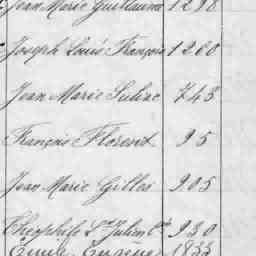 Jean Marie Guillaume 1298
Joseph Louis François 1260
Jean Marie Suliac 743
François Florent 95
Jean Marie Gilles 905
Théophile St Julien 930
Emile Eugène 1833